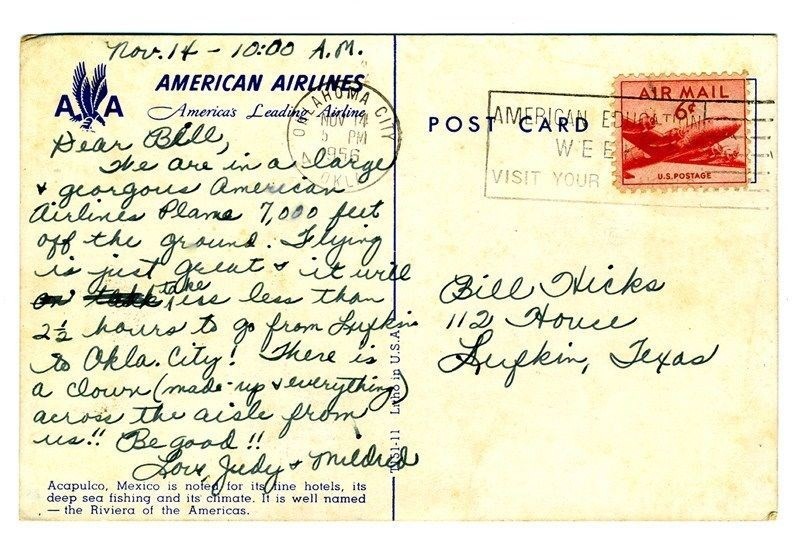 Nov. 14 - 10:00 A.M.
AMERICAN AIRLINES
America's Leading Airline
A A
Dear Bill,
We are in a large
& georgous American
Airlines Plane 7,000 feet
off the ground. Flying
is just great & it will
take us less than
2½ hours to go from Lufkin
to Okla. City! There is
a clown (made-up & everything)
across the aisle from
us!! Be good!!
Love, Judy & Mildred
Acapulco, Mexico is noted for its fine hotels, its
deep sea fishing and its climate. It is well named
— the Riviera of the Americas.
OKLAHOMA CITY
NOV 14
5 PM
1956
OKLA
Litho in U.S.A.
POST CARD
AMERICAN EDUCATION
WEE
VISIT YOUR
AIR MAIL
6¢
U.S. POSTAGE
Bill Hicks
112 House
Lufkin, Texas